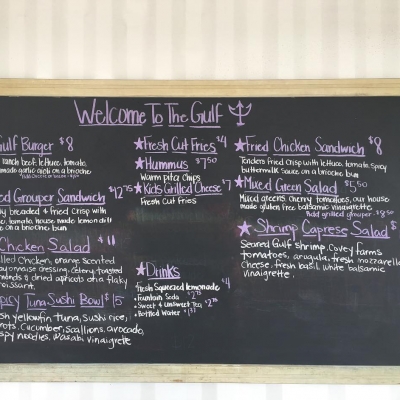 Welcome To The Gulf
Gulf Burger $8
ranch beef, lettuce, tomato,
garlic aioli on a brioche
Grouper Sandwich $12.75
breaded & fried crisp with
tomato, house made lemon dill
on a brioche bun
Chicken Salad $11
Chicken, orange scented
mayonnaise dressing, celery, toasted
almonds & dried apricots on a flaky
croissant.
Spicy Tuna Sushi Bowl $15
yellowfin tuna, sushi rice,
carrots, cucumber, scallions, avocado,
crispy noodles, wasabi vinaigrette
★Fresh Cut Fries $4
★Hummus $7.50
Warm pita Chips
★Kids Grilled Cheese $7
Fresh Cut Fries
★Drinks
Fresh Squeezed lemonade $4
• Fountain Soda $2.75
• Sweet & Unsweet Tea $2.75
• Bottled Water
★Fried Chicken Sandwich $8
Tenders fried Crisp with lettuce, tomato, spicy
buttermilk Sauce, on a brioche bun
★Mixed Green Salad $5.50
Mixed greens, Cherry tomatoes, our house
made gluten free balsamic vinaigrette.
*Add grilled grouper $8.50
★Shrimp Caprese Salad $
Seared Gulf shrimp, Covey farms
tomatoes, arugula, fresh mozzarella
Cheese, fresh basil, white balsamic
vinaigrette.